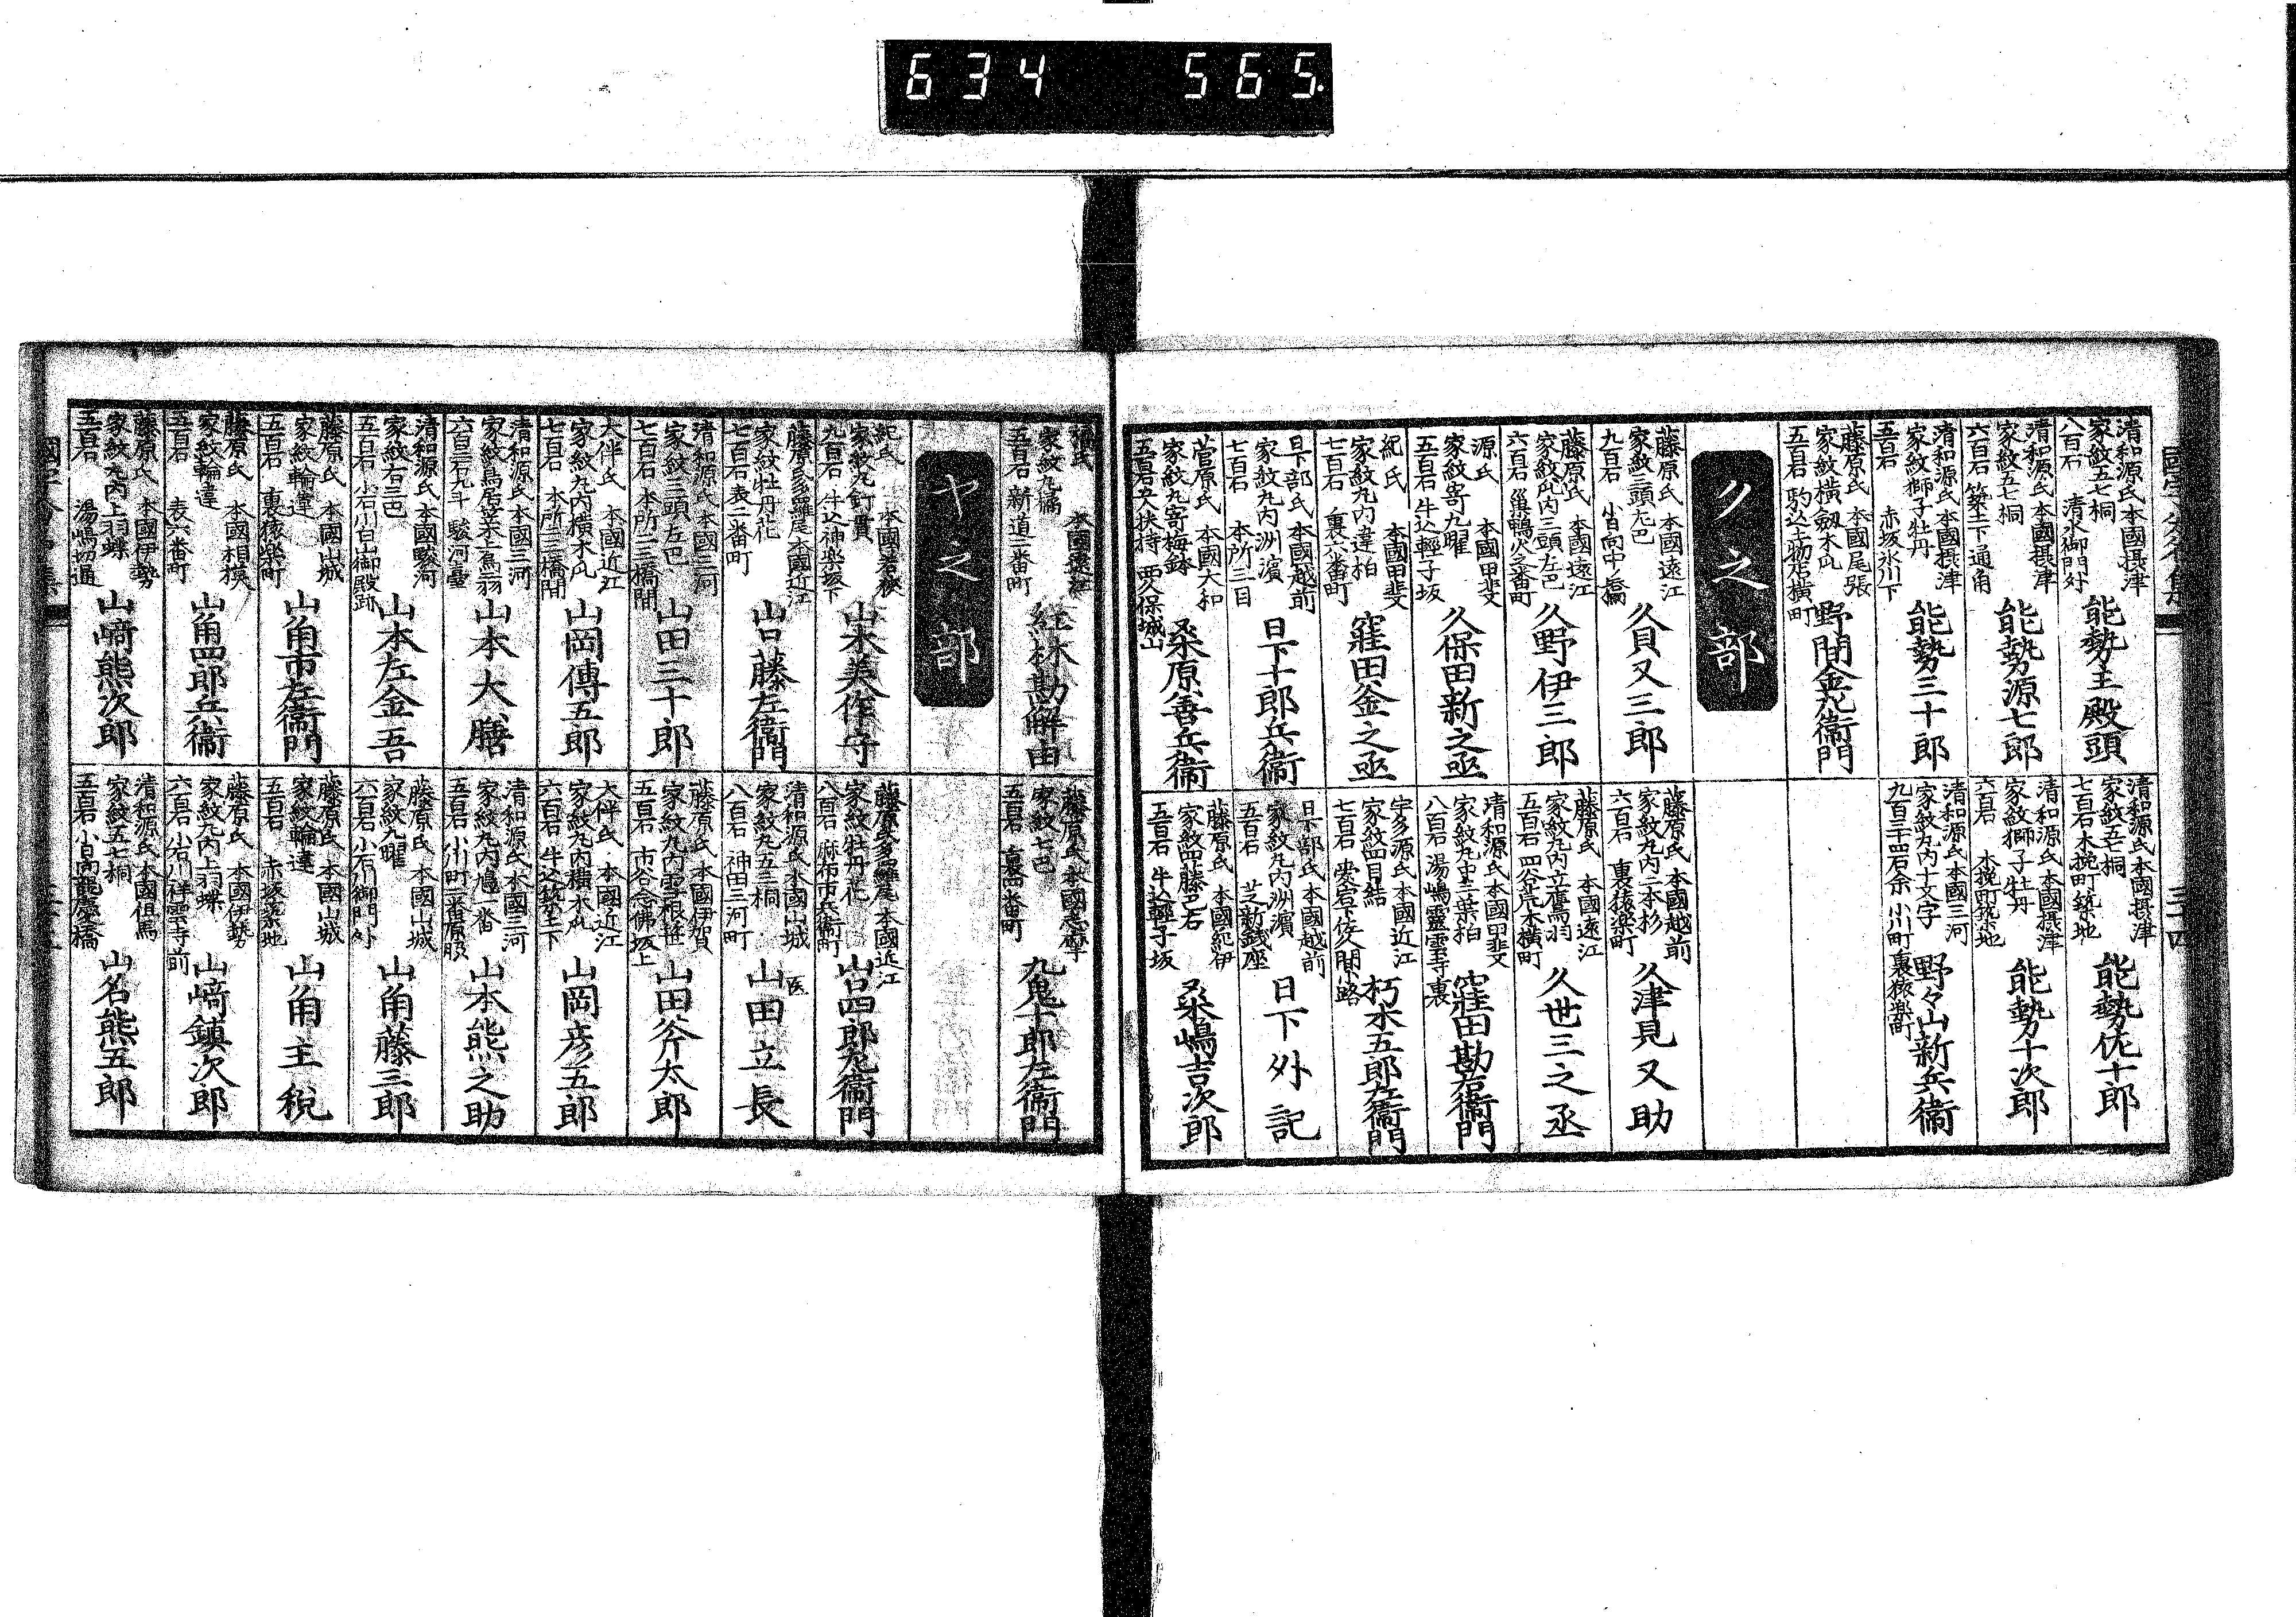 634 565.
清和源氏 本國摂津
家紋五七桐
八百石 清水御門外
能勢主殿頭
清和源氏 本國摂津
家紋五七桐
六百石 築土下通角
能勢源七郎
清和源氏 本國摂津
家紋獅子牡丹
五百石 赤坂氷川下
能勢三十郎
藤原氏 本國尾張
家紋横劔木瓜
五百石 駒込土物店横町
野間金左衞門
清和源氏 本國摂津
家紋五七桐
七百石 木挽町築地
能勢佐十郎
清和源氏 本國摂津
家紋獅子牡丹
六百石 木挽町築地
能勢十次郎
清和源氏 本國三河
家紋丸内十文字
九百三十四石余 小川町裏猿楽町
野々山新兵衞
ク之部
藤原氏 本國遠江
家紋三頭左巴
九百石 小日向中ノ橋
久貝又三郎
藤原氏 本國遠江
家紋瓜内三頭左巴
六百石 巣鴨火之番町
久野伊三郎
源氏 本國甲斐
家紋寄九曜
五百石 牛込輕子坂
久保田新之丞
紀氏 本國甲斐
家紋丸内違柏
七百石 裏六番町
窪田金之丞
日下部氏 本國越前
家紋丸内洲濱
七百石 本所三目
日下十郎兵衞
菅原氏 本國大和
家紋丸寄梅鉢
五百石五人扶持 西久保城山
桑原善兵衞
藤原氏 本國越前
家紋丸内二本杉
六百石 裏猿楽町
久津見又助
藤原氏 本國遠江
家紋丸内立鷹羽
五百石 四谷荒木横町
久世三之丞
清和源氏 本國甲斐
家紋丸中三葉柏
八百石 湯嶋靈雲寺裏
窪田勘右衞門
宇多源氏 本國近江
家紋四目結
七百石 愛宕下佐久間小路
朽木五郎左衞門
日下部氏 本國越前
家紋丸内洲濱
五百石 芝新銭座
日下外記
藤原氏 本國紀伊
家紋四藤巴
五百石 牛込輕子坂
桑嶋吉次郎
三十四
源氏 本國遠江
家紋丸橘
五百石 新道二番町
勘解由
藤原氏 本國志摩
家紋七巴
五百石 裏六番町
九鬼十郎左衞門
ヤ之部
紀氏 本國若狭
家紋丸釘貫
九百石 牛込神楽坂下
山木美作守
藤原多羅尾 本國近江
家紋牡丹花
七百石 表二番町
山口藤左衞門
清和源氏 本國三河
家紋三頭左巴
七百石 本所三橋間
山田三十郎
大伴氏 本國近江
家紋丸内横木瓜
七百石 本所三橋間
山岡傳五郎
清和源氏 本國三河
家紋鳥居笠木鳩羽
六百石九斗 駿河臺
山本大膳
清和源氏 本國駿河
家紋右三巴
五百石 小石川白山御殿跡
山本左金吾
藤原氏 本國山城
家紋輪違
五百石 裏猿楽町
山角市左衞門
藤原氏 本國相模
家紋輪違
五百石 表六番町
山角四郎兵衞
藤原氏 本國伊勢
家紋丸内上羽蝶
五百石 湯嶋切通
山﨑熊次郎
藤原氏多羅尾 本國近江
家紋牡丹花
八百石 麻布市兵衞町
山口四郎左衞門
清和源氏 本國山城
家紋丸五三桐
八百石 神田三河町
医
山田立長
藤原氏 本國伊賀
家紋丸内雪根笹
五百石 市谷念佛坂上
山田斧太郎
大伴氏 本國近江
家紋丸内横木瓜
六百石 牛込築土下
山岡彦五郎
清和源氏 本國三河
家紋丸内鳩一番
五百石 小川町二番原脇
山本熊之助
藤原氏 本國山城
家紋九曜
六百石 小石川御門外
山角藤三郎
藤原氏 本國山城
家紋輪違
五百石 赤坂築地
山角主税
藤原氏 本國伊勢
家紋丸内上羽蝶
六百石 小石川祥雲寺前
山﨑鎮次郎
清和源氏 本國但馬
家紋五七桐
五百石 小日向龍慶橋
山名熊五郎